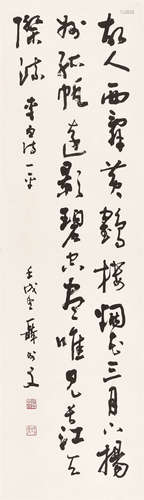 故人西辭黃鶴樓烟花三月下揚
州孤帆遠影碧空盡唯見長江天
際流 李白詩一首
壬戌冬聶成文